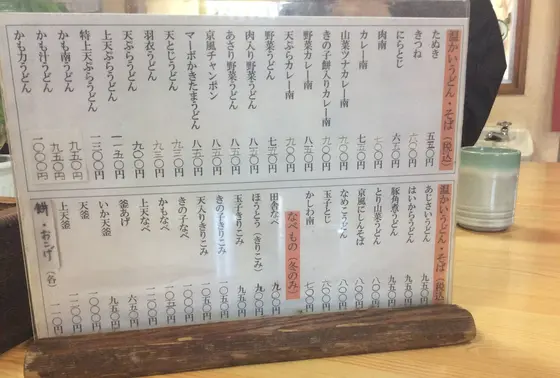 温かいうどん・そば（税込）
たぬき 五五〇円
きつね 六〇〇円
にらとじ 六三〇円
肉南 七〇〇円
カレー南 七三〇円
山菜ツナカレー南 九〇〇円
きの子餅入りカレー南 九〇〇円
野菜カレー南 八五〇円
天ぷらカレー南 九〇〇円
野菜うどん 七三〇円
肉入り野菜うどん 八三〇円
あさり野菜うどん 八五〇円
京風チャンポン 八五〇円
マーボかきたまうどん 八三〇円
天とじうどん 九三〇円
羽衣うどん 九三〇円
天ぷらうどん 九〇〇円
上天ぷらうどん 一一五〇円
特上天ぷらうどん 一三〇〇円
かも南うどん 九五〇円
かも汁うどん 九五〇円
かも力うどん 一〇〇〇円
温かいうどん・そば（税込）
あじさいうどん 九五〇円
はいからうどん 九五〇円
豚角煮うどん 九五〇円
とり山菜うどん
京風にしんそば
なめこうどん 八〇〇円
玉子とじ 六〇〇円
かしわ南 七〇〇円
なべもの（冬のみ）
田舎なべ 九〇〇円
ほうとう（きりこみ） 九〇〇円
玉子きりこみ 九五〇円
きの子きりこみ 一〇五〇円
天入りきりこみ 一〇五〇円
きの子なべ 一〇〇〇円
かもなべ 一〇五〇円
上天なべ 一二〇〇円
釜あげ 六五〇円
いか天釜 九五〇円
天釜 一〇〇〇円
上天釜 一二〇〇円
餅・おこげ（各） 一一〇円